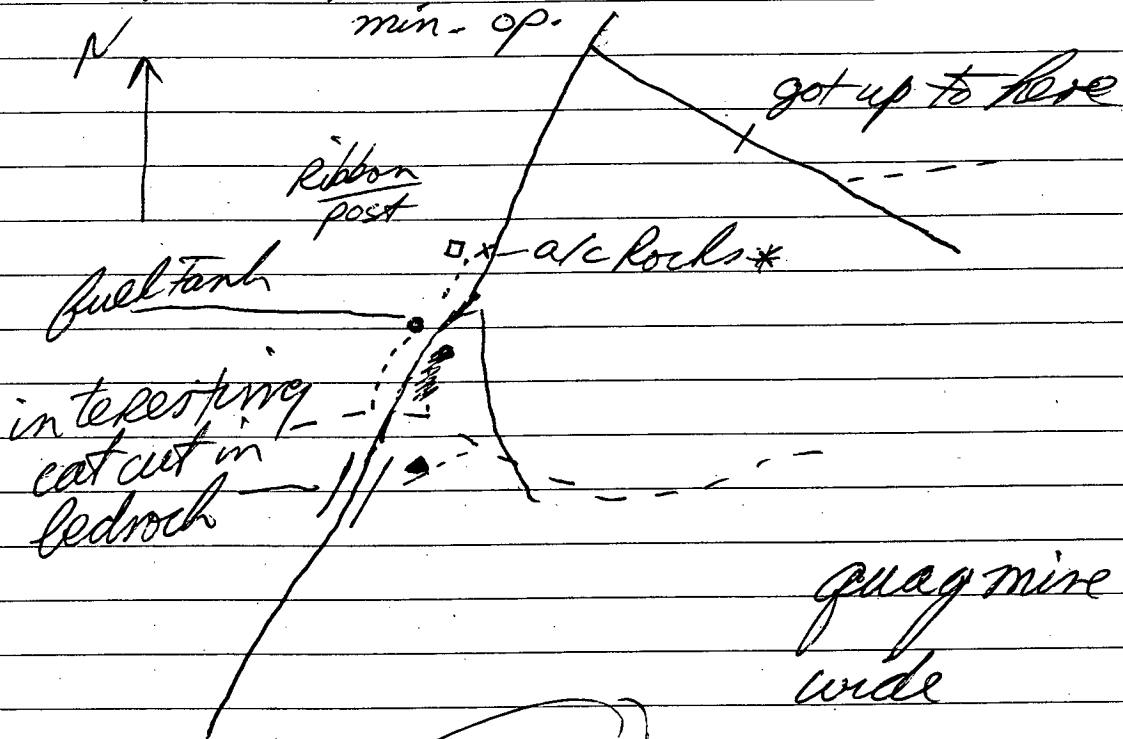 min. op.
N
got up to here
Ribbon
post
a/c Rocks *
fuel Tank
interesting
cat cut in
bedrock
quagmire
wide